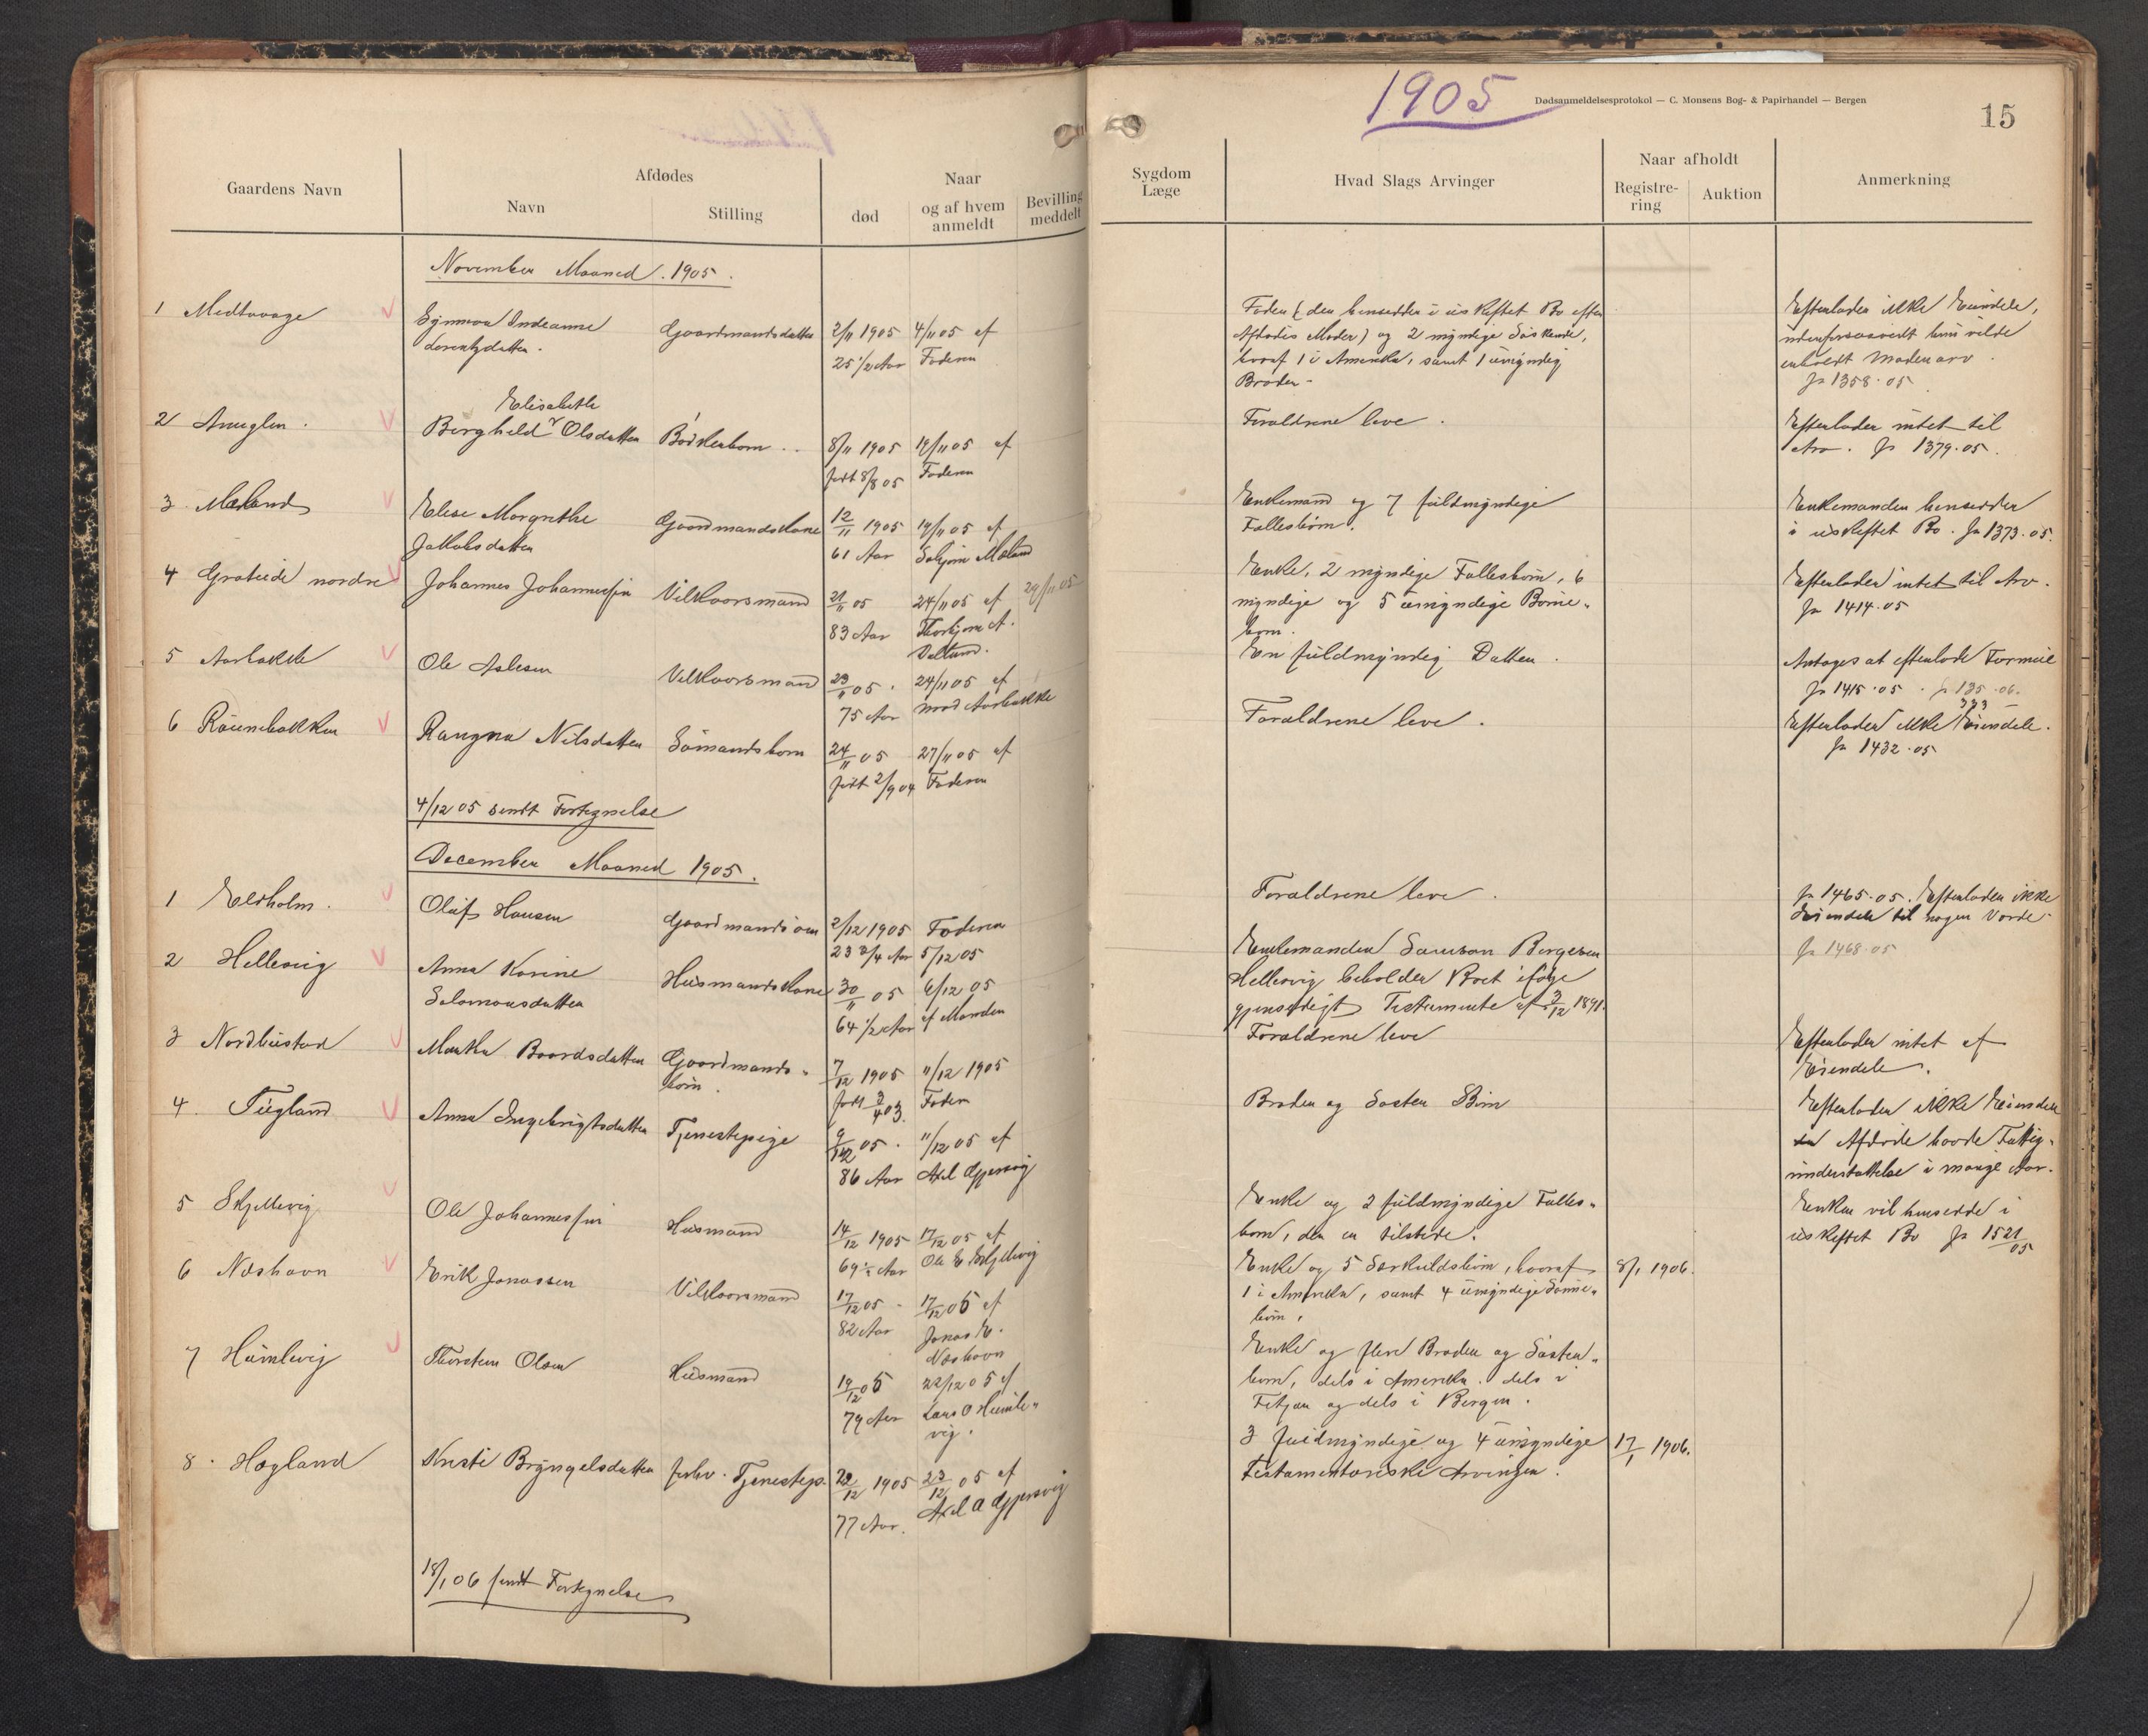 1905
Dødsanmeldelsesprotokol — C. Monsens Bog- & Papirhandel — Bergen
15
Gaardens Navn
Afdødes
Navn
Stilling
død
Naar
og af hvem
anmeldt
Bevilling
meddelt
Sygdom
Læge
Hvad Slags Arvinger
Naar afholdt
Registre-
ring
Auktion
Anmerkning
November Maaned. 1905.
1 Medtvaage
Synnøva Andeanna
Lorentzdatter.
Gaardmandsdatter
2/11 1905
25 1/2 Aar
4/11 05 af
Faderen
Fader (der hensidder i uskiftet Bo efter
Afdødes Moder) og 2 myndige Søskende,
hvoraf 1 i Amerika, samt 1 umyndig
Broder.
Efterlader ikke Eiendele,
udenforsaavidt hun vilde
erholdt Modenarv.
Jr 1358.05
2 Anuglen.
Elisabeth
Borghild Olsdatter
Bødkerbarn
8/11 1905
født 8/8 05
14/11 05 af
Faderen
Forældrene leve.
Efterlader intet til
Arv. Jr 1379.05.
3 Mæland
Elise Margrethe
Jakobsdatter
Gaardmandskone
12/11 1905
61 Aar
14/11 05 af
Salgjøm Mæland
Enkemand og 7 fuldmyndige
Fællesbørn.
Enkemanden hensidder
i uskiftet Bo. Jr 1373.05.
4 Grateide nordre
Johannes Johannessøn
Vilkaarsmand
21/11 05
83 Aar
24/11 05 af
Thorbjørn A.
29/11 05
Enke, 2 myndige Fællesbørn, 6
myndige og 5 umyndige Børne-
børn.
Efterlader intet til Arv.
Jr 1414.05
5 Aarbakke
Ole Aslesen
Vilkaarsmand
23/11 05.
75 Aar
24/11 05 af
Aarbakke
En fuldmyndig Datter.
Antages at efterlade Formue
Jr 1415.05. Jr 135.06.
6 Raunebakken
Raugna Nilsdatter
Sømandsbarn
24/11 05
født 2/9 04
27/11 05 af
Faderen
Forældrene leve.
Efterlader ikke Eiendele.
Jr 1432.05
4/12 05 sendt Fortegnelse
December Maaned 1905.
1 Eldholm.
Oluf Hansen
Gaardmandssøn
2/12 1905
23 3/4 Aar
Faderen
5/12 05
Forældrene leve.
Jr 1465.05. Efterlader ikke
Eiendele til nogen Værdi.
2 Hellevig
Anna Karine
Salomonsdatter
Husmandskone
30/11 05
64 1/2 Aar
6/12 05
af Manden
Enkemanden Samson Bergesen
Hellevig beholder Boet ifølge
gjensidigt Testamente af 3/12 1891.
Jr 1468.05
3 Nordbustad
Martha Baardsdatter
Gaardmands-
barn.
7/12 1905
født 3/4 03.
11/12 1905
Fader
Forældrene leve
Efterlader intet af
Eiendele.
4. Tugland
Anna Ingebrigtsdatter
Tjenestepige
9/12 05.
86 Aar
11/12 05 af
Axel Gjersvig
Broder og Søster Børn
Efterlader ikke Eiendele
Afdøde havde Fattig-
understøttelse i mange Aar.
5 Skjellevig
Ole Johannessøn
Husmand
14/12 1905
69 1/2 Aar
17/12 05 af
Ole E Skjellevig
Enke og 2 fuldmyndige Fælles-
børn, der er tilstede.
Enken vil hensidde i
uskiftet Bo Jr 1521/05
6 Næshavn
Erik Jonassen
Vilkaarsmand
17/12 05.
82 Aar
17/12 05 af
Jonas E.
Næshavn
Enke og 5 Særkuldsbørn, hvoraf
1 i Amerika, samt 4 umyndige Sønne-
børn.
8/1 1906.
7 Humlevig
Thorsten Olsen
Husmand
19/12 05
79 Aar
22/12 05 af
Lars O Humle-
vig.
Enke og flere Broder og Søster-
børn, dels i Amerika. dels i
Fitjar og dels i Bergen.
8. Høgland
Kristi Bryngelsdatter
forhv. Tjenestep.
22/12 1905
77 Aar.
23/12 05 af
Axel A Gjersvig
3 fuldmyndige og 4 umyndige
Testamentariske Arvinger.
17/1 1906.
18/1 06 sendt Fortegnelse